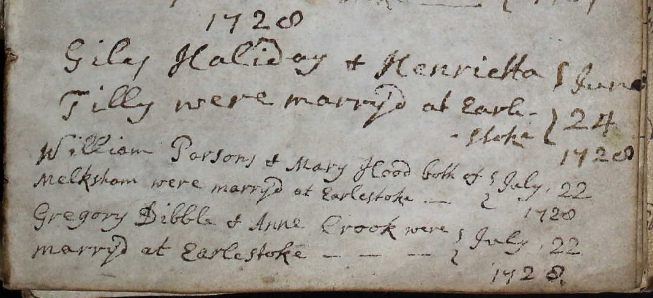 1728
Giles Haliday & Henrietta } June
Tilly were marry'd at Earle- } 24
-stoke 1728
William Parsons & Mary Hood both of } July. 22
Melksham were marry'd at Earlestoke — } 1728
Gregory Dibble & Anne Crook were } July. 22
marry'd at Earlestoke — — — } 1728.